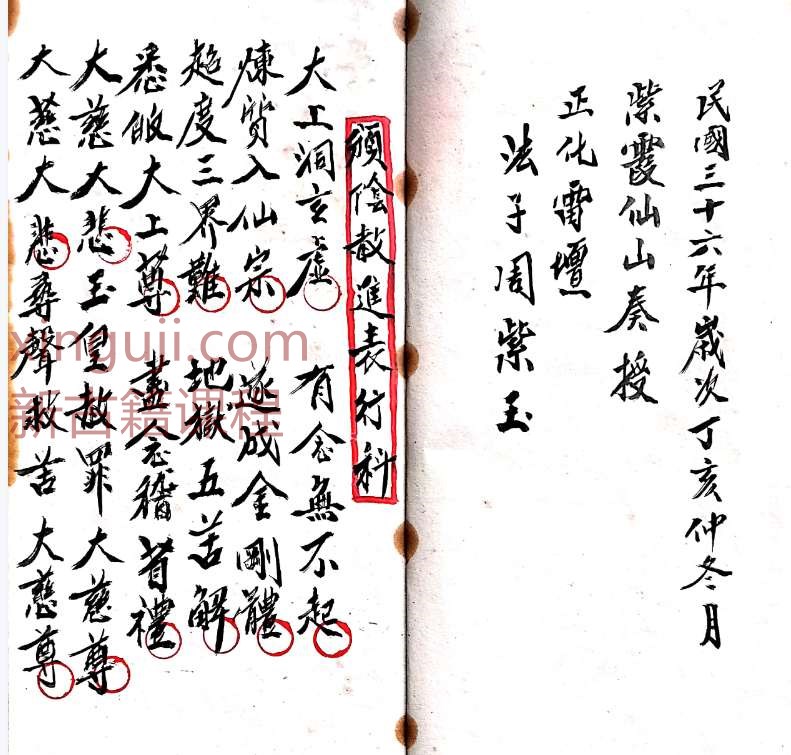 民國三十六年歲次丁亥仲冬月
紫霞仙山奏授
正化雷壇
法子周紫玉
頒陰赦進表行科
大上洞玄虛 有念無不起
煉質入仙宗 遂成金剛體
超度三界難 地獄五苦解
悉皈大上尊 盡念稽首禮
大慈大悲玉皇赦罪 大慈尊
大慈大悲尋聲救苦 大慈尊
xinguji.com
新古籍课程